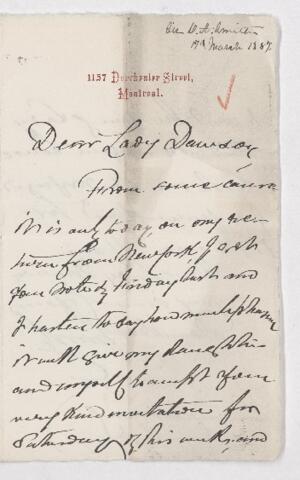 Sir D. A. Smith
17th March 1887
1157 Dorchester Street,
Montreal.
Dear Lady Dawson
From some cause
it is only today, on my re-
turn from New York, I get
your note of Friday last and
I hasten to say how much pleasure
it will give my
and myself to accept your
very kind invitation for
Saturday of this week, and